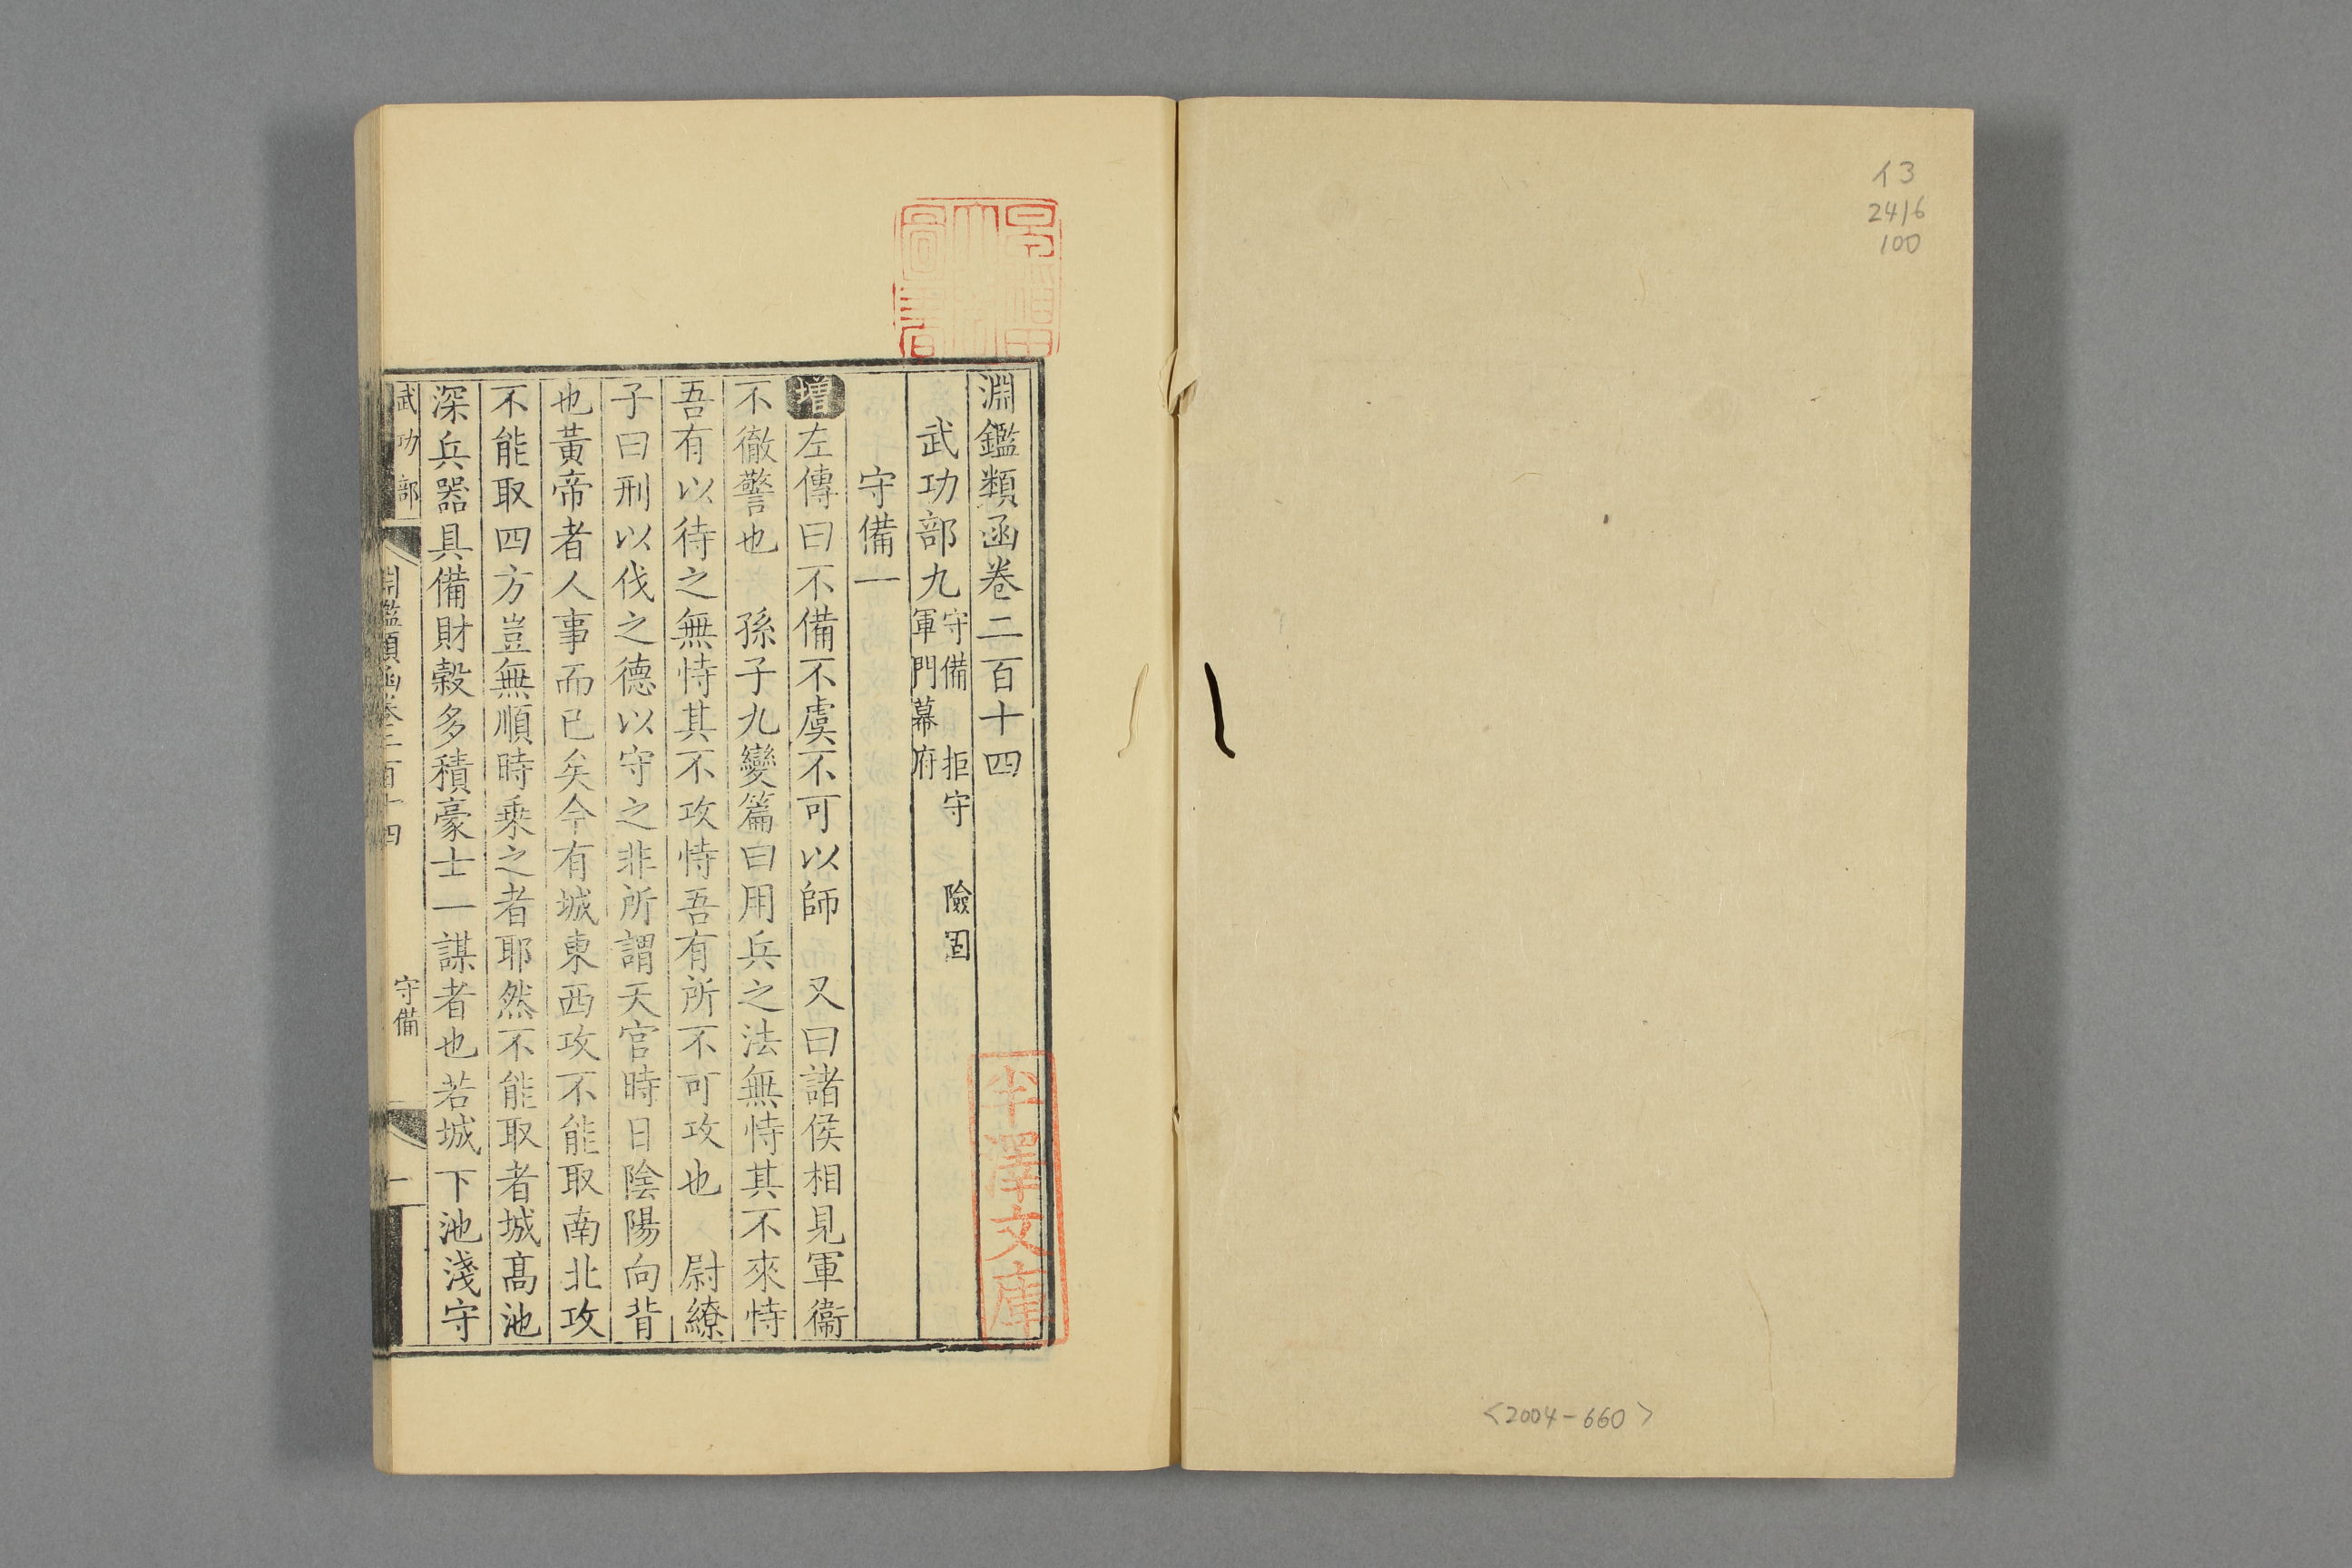 イ3
2416
100
<2004-660>
淵鑑類函卷二百十四
武功部九 守備 拒守 險固
軍門 幕府
守備一
增 左傳曰不備不虞不可以師 又曰諸侯相見軍衞
不徹警也 孫子九變篇曰用兵之法無恃其不來恃
吾有以待之無恃其不攻恃吾有所不可攻也 尉繚
子曰刑以伐之德以守之非所謂天官時日陰陽向背
也黃帝者人事而已矣今有城東西攻不能取南北攻
不能取四方豈無順時乘之者耶然不能取者城高池
深兵器具備財穀多積豪士一謀者也若城下池淺守
武功部 淵鑑類函卷二百十四 守備 一
半澤文庫